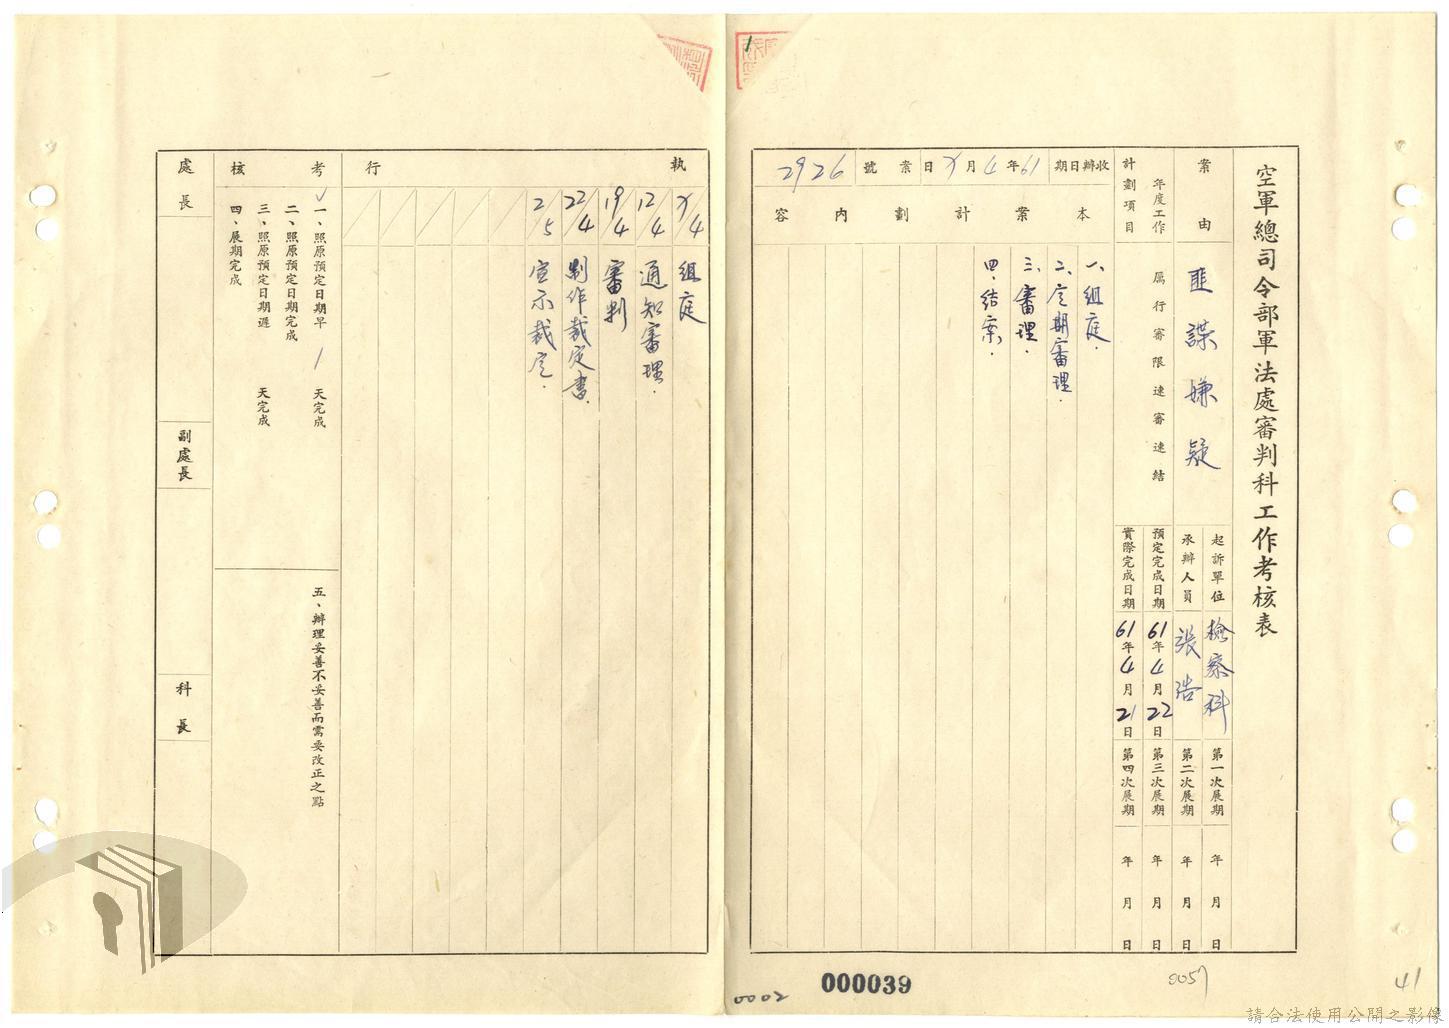 空軍總司令部軍法處審判科工作考核表
案由
匪諜嫌疑
起訴單位
檢察科
第一次展期
年 月 日
承辦人員
張浩
第二次展期
年 月 日
年度工作
計劃項目
厲行審限速審速結
預定完成日期
61年4月22日
第三次展期
年 月 日
實際完成日期
61年4月21日
第四次展期
年 月 日
收辦日期
61年4月 日
案號
2926
本案計劃內容
一、組庭.
二、定期審理.
三、審理.
四、結案.
執行
/4 組庭
12/4 通知審理.
19/4 審判
22/4 制作裁定書.
2/5 宣示裁定.
考核
✓
一、照原預定日期早 1 天完成
二、照原預定日期完成
三、照原預定日期遲 天完成
四、展期完成
五、辦理妥善不妥善而需要改正之點
處長
副處長
科長
0002
000039
0057
41
請合法使用公開之影像